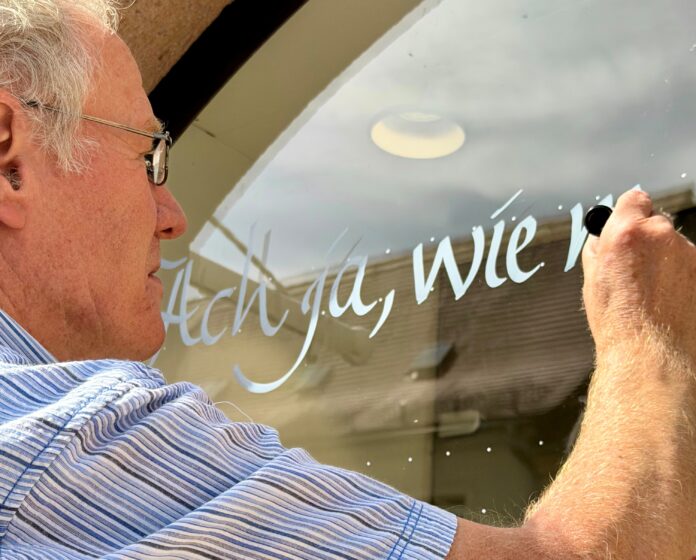 Ach ja, wie